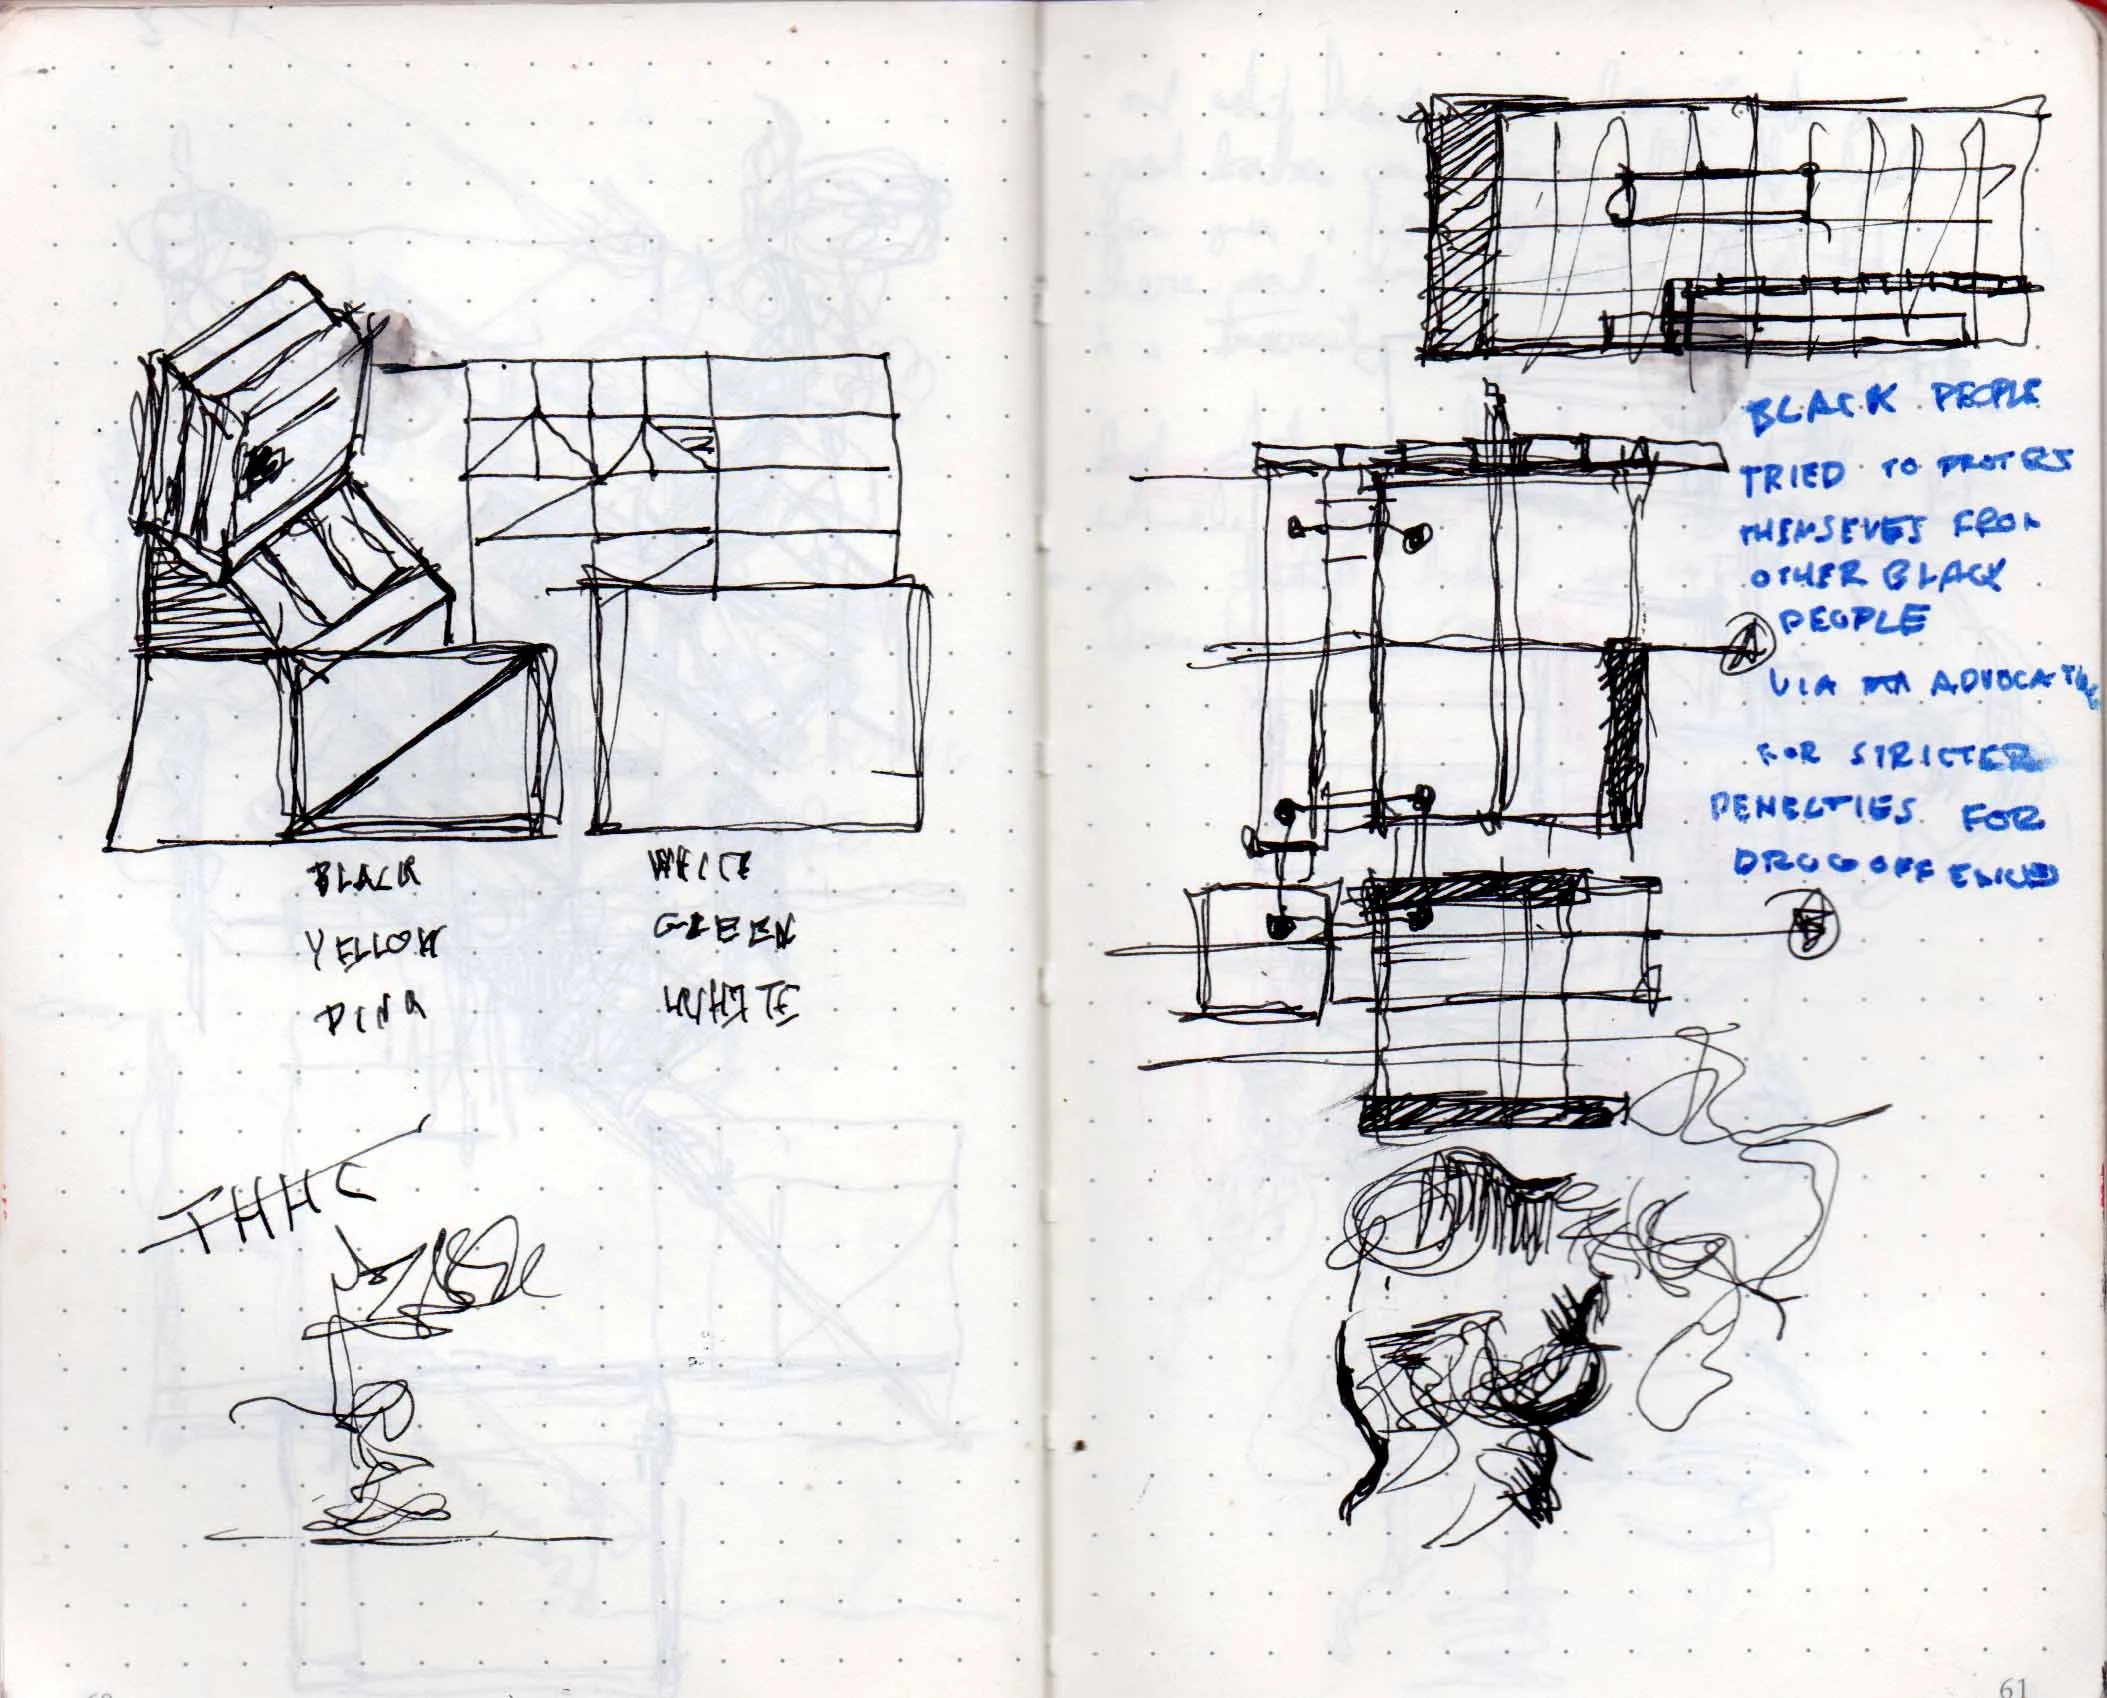 BLACK
YELLOW
PINK
WHITE
GREEN
WHITE
THHC
BLACK PEOPLE
TRIED TO PROTECT
THEMSEVES FROM
OTHER BLACK
PEOPLE
VIA ADVOCATING
FOR STRICTER
PENELTIES FOR
DRUG OFF
61